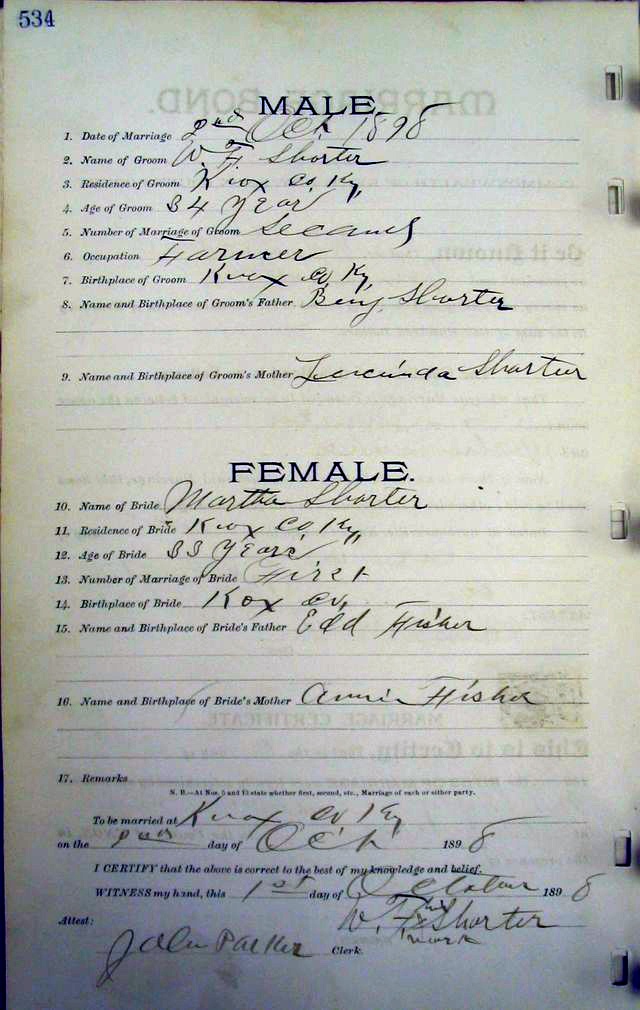 534
MALE.
1. Date of Marriage 2nd Oct 1898
2. Name of Groom W. F. Shorter
3. Residence of Groom Knox Co, Ky,
4. Age of Groom 34 Years
5. Number of Marriage of Groom Second
6. Occupation Farmer
7. Birthplace of Groom Knox Co, Ky,
8. Name and Birthplace of Groom's Father Benj Shorter
9. Name and Birthplace of Groom's Mother Lucinda Shorter
FEMALE.
10. Name of Bride Martha Shorter
11. Residence of Bride Knox Co, Ky
12. Age of Bride 33 Years
13. Number of Marriage of Bride First
14. Birthplace of Bride Kox Co,
15. Name and Birthplace of Bride's Father Edd Fisher
16. Name and Birthplace of Bride's Mother Annie Fisher
17. Remarks
N. B.—At Nos. 5 and 13 state whether first, second, etc., Marriage of each or either party.
To be married at Knox Co, Ky,
on the 2nd day of Oct, 1898
I CERTIFY that the above is correct to the best of my knowledge and belief.
WITNESS my hand, this 1st day of October 1898
W. F. his x Shorter
mark
Attest:
John Parker Clerk.